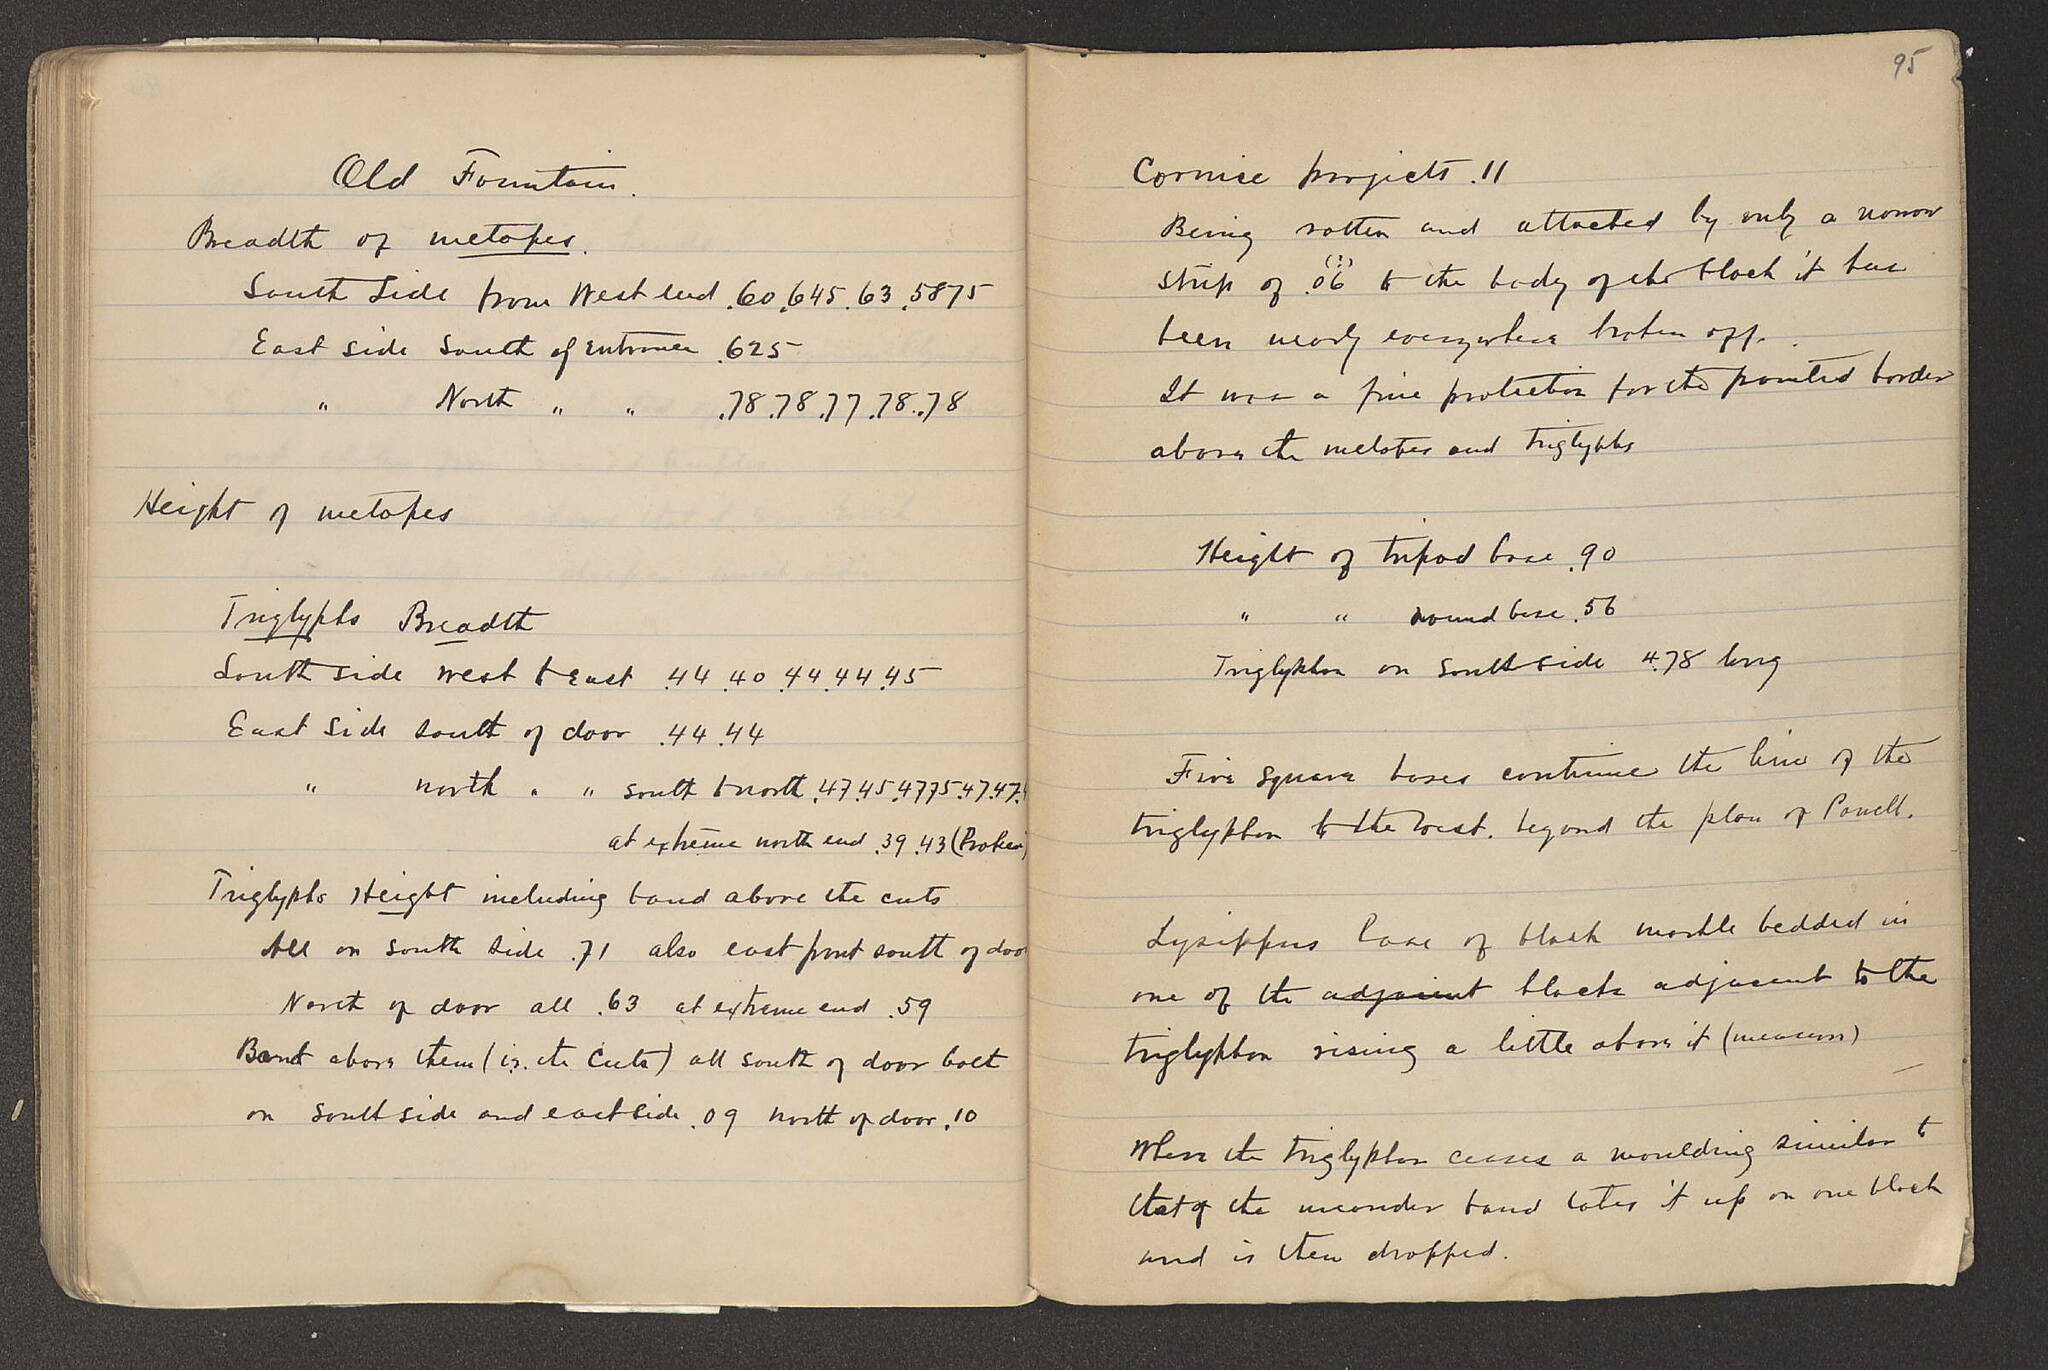 Old Fountain.
Breadth of metopes.
South Side from West end .60 .645 .63 .5875
East side South of Entrance .625
" North " " .78 .78 .77 .78 .78
Height of metopes
Triglyphs Breadth
South side west to East .44 .40 .44 .44 .45
East Side south of door .44 .44
" north " " south to north .47 .45 .4775 .47 .47
at extreme north end .39 .43 (Broken)
Triglyphs Height including band above the cuts
All on south side .71 also east front south of door
North of door all .63 at extreme end .59
Band above them (i.e. the cuts) all south of door both
on south side and east side .09 north of door .10
95
Cornice projects .11
Being rotten and attached by only a narrow
strip of .06 (?) to the body of the block it has
been nearly everywhere broken off.
It was a fine protection for the painted border
above the metopes and triglyphs
Height of tripod base .90
" " round base .56
Triglyphon on south side 4.78 long
Five square bases continue the line of the
triglyphon to the west. beyond the plan of Powell.
Lysippus base of black marble bedded in
one of the adjacent blocks adjacent to the
triglyphon rising a little above it (measure)
Where the triglyphon ceases a moulding similar to
that of the meander band takes it up on one block
and is then dropped.